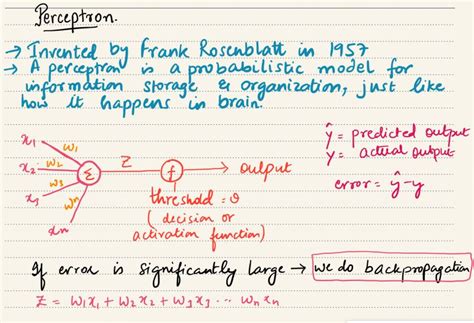 Perceptron.
→ Invented by Frank Rosenblatt in 1957
→ A perceptron is a probabilistic model for
information storage & organization, just like
how it happens in brain.
x1 w1
x2 w2
x3 w3
xn wn
Σ Z f → output
threshold = θ
( decision or
activation function)
ŷ = predicted output
y = actual output
error = ŷ - y
If error is significantly large → we do backpropagation
Z = w1x1 + w2x2 + w3x3 ... wnxn